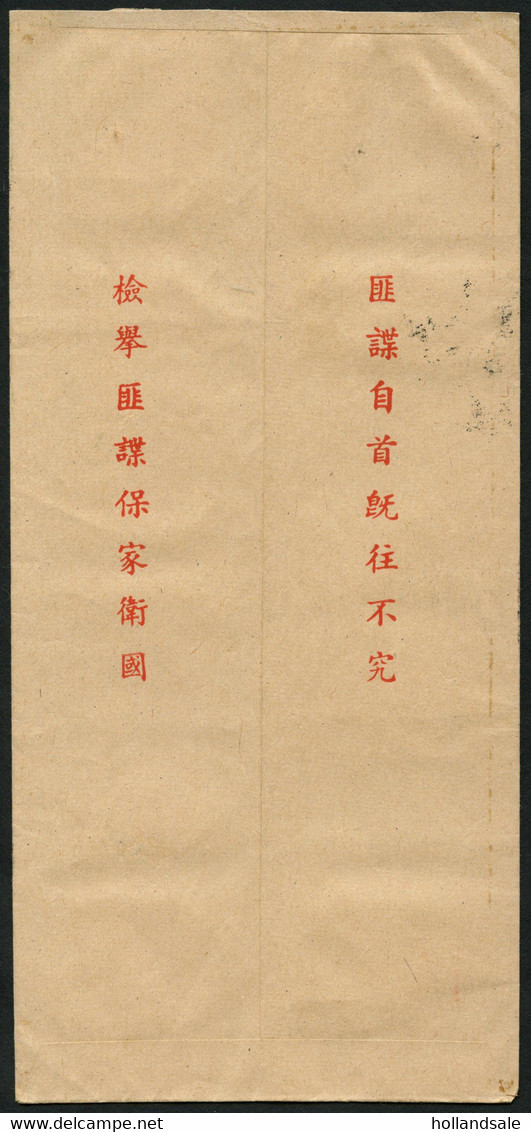 匪諜自首既往不究
檢舉匪諜保家衛國
hollandsale